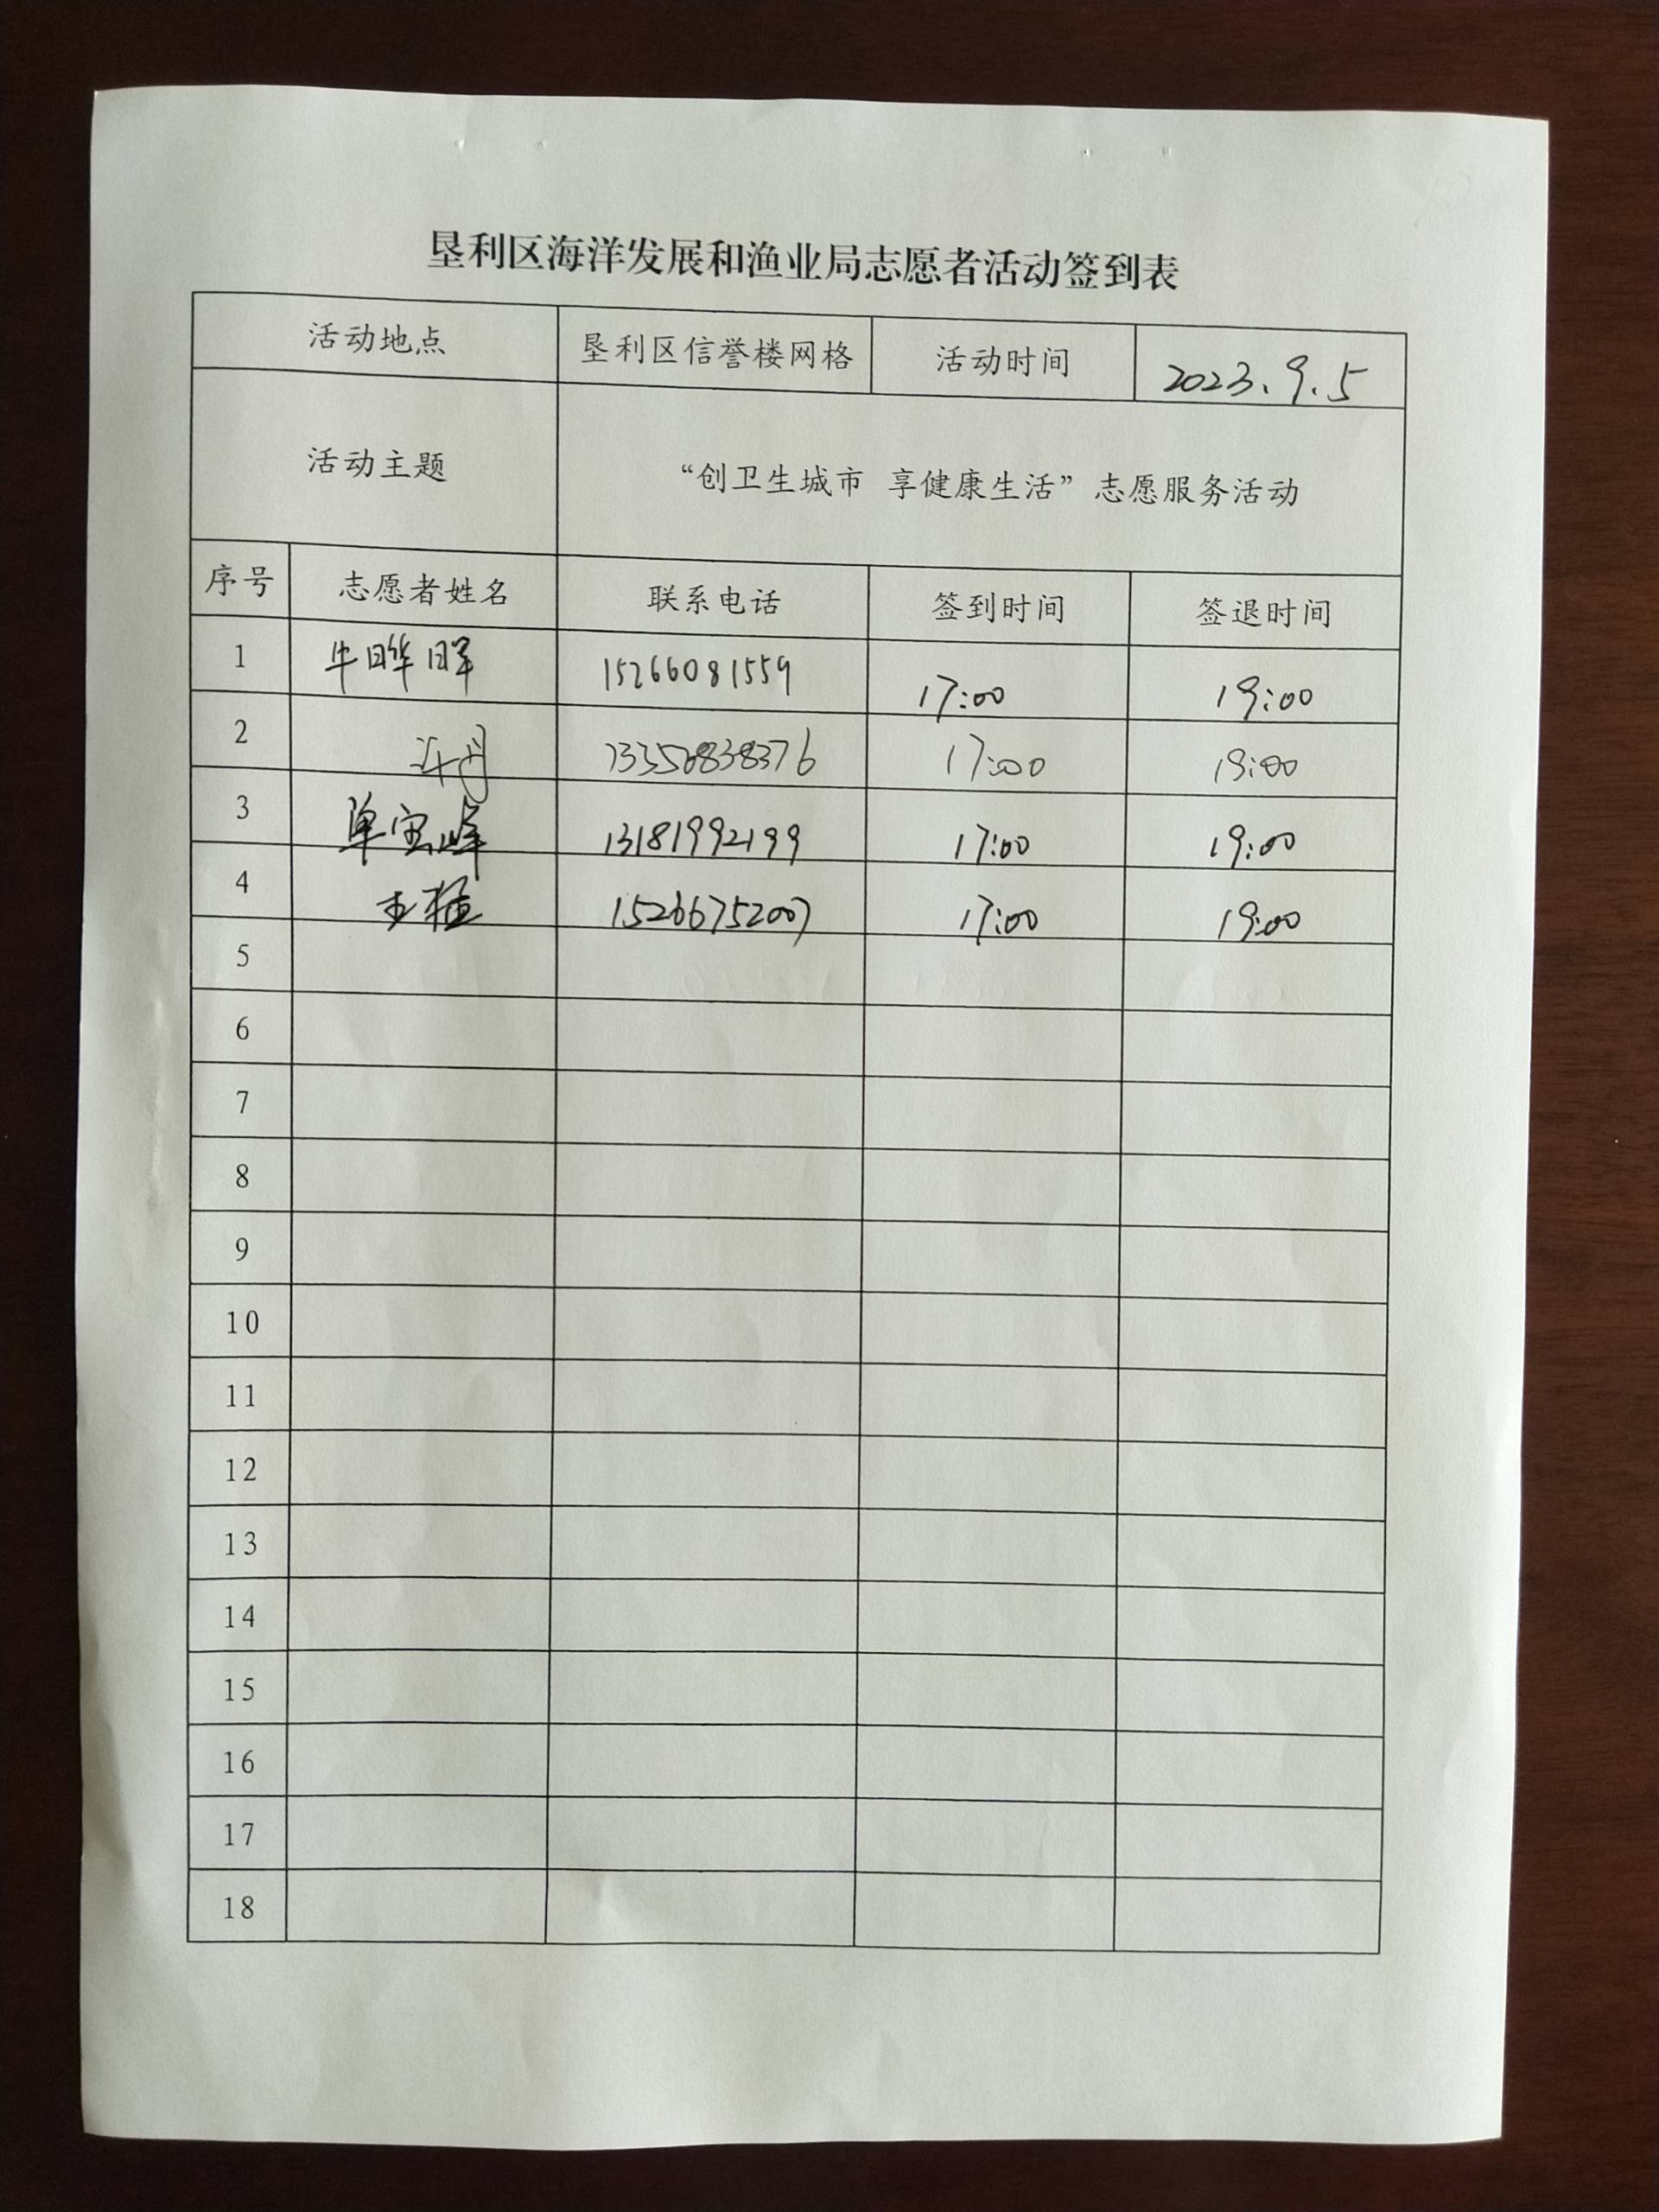 垦利区海洋发展和渔业局志愿者活动签到表
活动地点 垦利区信誉楼网格 活动时间 2023.9.5
活动主题 “创卫生城市 享健康生活”志愿服务活动
序号 志愿者姓名 联系电话 签到时间 签退时间
1 牛晔晖 15266081559 17:00 19:00
2 许丹 17:00 19:00
3 单宝峰 13181992199 17:00 19:00
4 15266752007 17:00 19:00
5
6
7
8
9
10
11
12
13
14
15
16
17
18